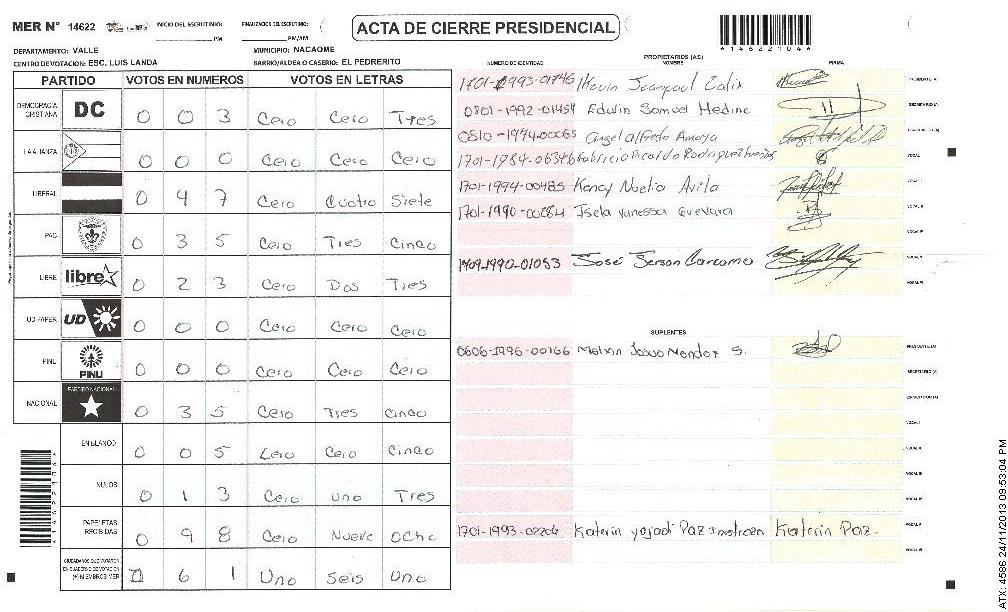 MER N° 14622 INICIO DEL ESCRUTINIO: PM FINALIZACION DEL ESCRUTINIO: PM/AM
ACTA DE CIERRE PRESIDENCIAL
*14622104*
DEPARTAMENTO: VALLE MUNICIPIO: NACAOME
CENTRO DE VOTACION: ESC. LUIS LANDA BARRIO/ALDEA O CASERIO: EL PEDRERITO
PARTIDO VOTOS EN NUMEROS VOTOS EN LETRAS
DEMOCRACIA CRISTIANA DC 0 0 3 Cero Cero Tres
LA ALIANZA 0 0 0 Cero Cero Cero
LIBERAL 0 4 7 Cero Cuatro Siete
PAC 0 3 5 Cero Tres Cinco
LIBRE libre 0 2 3 Cero Dos Tres
UD-FAPER UD 0 0 0 Cero Cero Cero
PINU PINU 0 0 0 Cero Cero Cero
NACIONAL PARTIDO NACIONAL 0 3 5 Cero Tres Cinco
EN BLANCO 0 0 5 Cero Cero Cinco
NULOS 0 1 3 Cero uno Tres
PAPELETAS RECIBIDAS 0 9 8 Cero Nueve Ocho
CIUDADANOS QUE VOTARON EN CUADERNO DE VOTACION (+) MIEMBROS MER 6 1 Uno Seis Uno
PROPIETARIOS (AS)
NUMERO DE IDENTIDAD NOMBRE FIRMA
1701-1993-01746 Kevin Jeanpaul Calix PRESIDENTE (A)
0801-1992-01454 Edwin Samuel Medina SECRETARIO (A)
0810-1994-00065 Angel alfredo Amaya
1701-1984-00346 Fabricio Ricardo Rodriguez VOCAL
1701-1994-00485 Kency Noelia Avila VOCAL I
1701-1990-00284 Isela vanessa Guevara VOCAL II
1709-1990-01053 José Jerson Carcamo VOCAL V
SUPLENTES
0606-1996-00166 Melvin Josue Mendoz S. PRESIDENTE (A)
SECRETARIO (A)
VOCAL I
VOCAL II
VOCAL III
VOCAL IV
1701-1993-02206 Katerin yojadi Paz Katerin Paz. VOCAL V
VOCAL VI
ATX: 4586 24/11/2013 09:53:04 PM